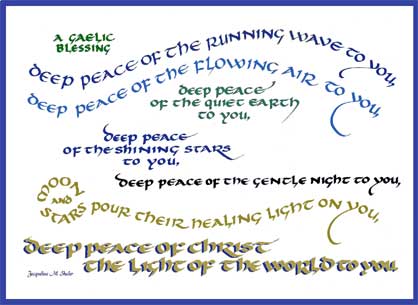 A GAELIC
BLESSING
DEEP PEACE OF THE RUNNING WAVE TO YOU,
DEEP PEACE OF THE FLOWING AIR TO YOU,
DEEP PEACE
OF THE QUIET EARTH
TO YOU,
DEEP PEACE
OF THE SHINING STARS
TO YOU,
DEEP PEACE OF THE GENTLE NIGHT TO YOU,
MOON
AND
STARS POUR THEIR HEALING LIGHT ON YOU,
DEEP PEACE OF CHRIST
THE LIGHT OF THE WORLD TO YOU
Jacqueline M. Shuler